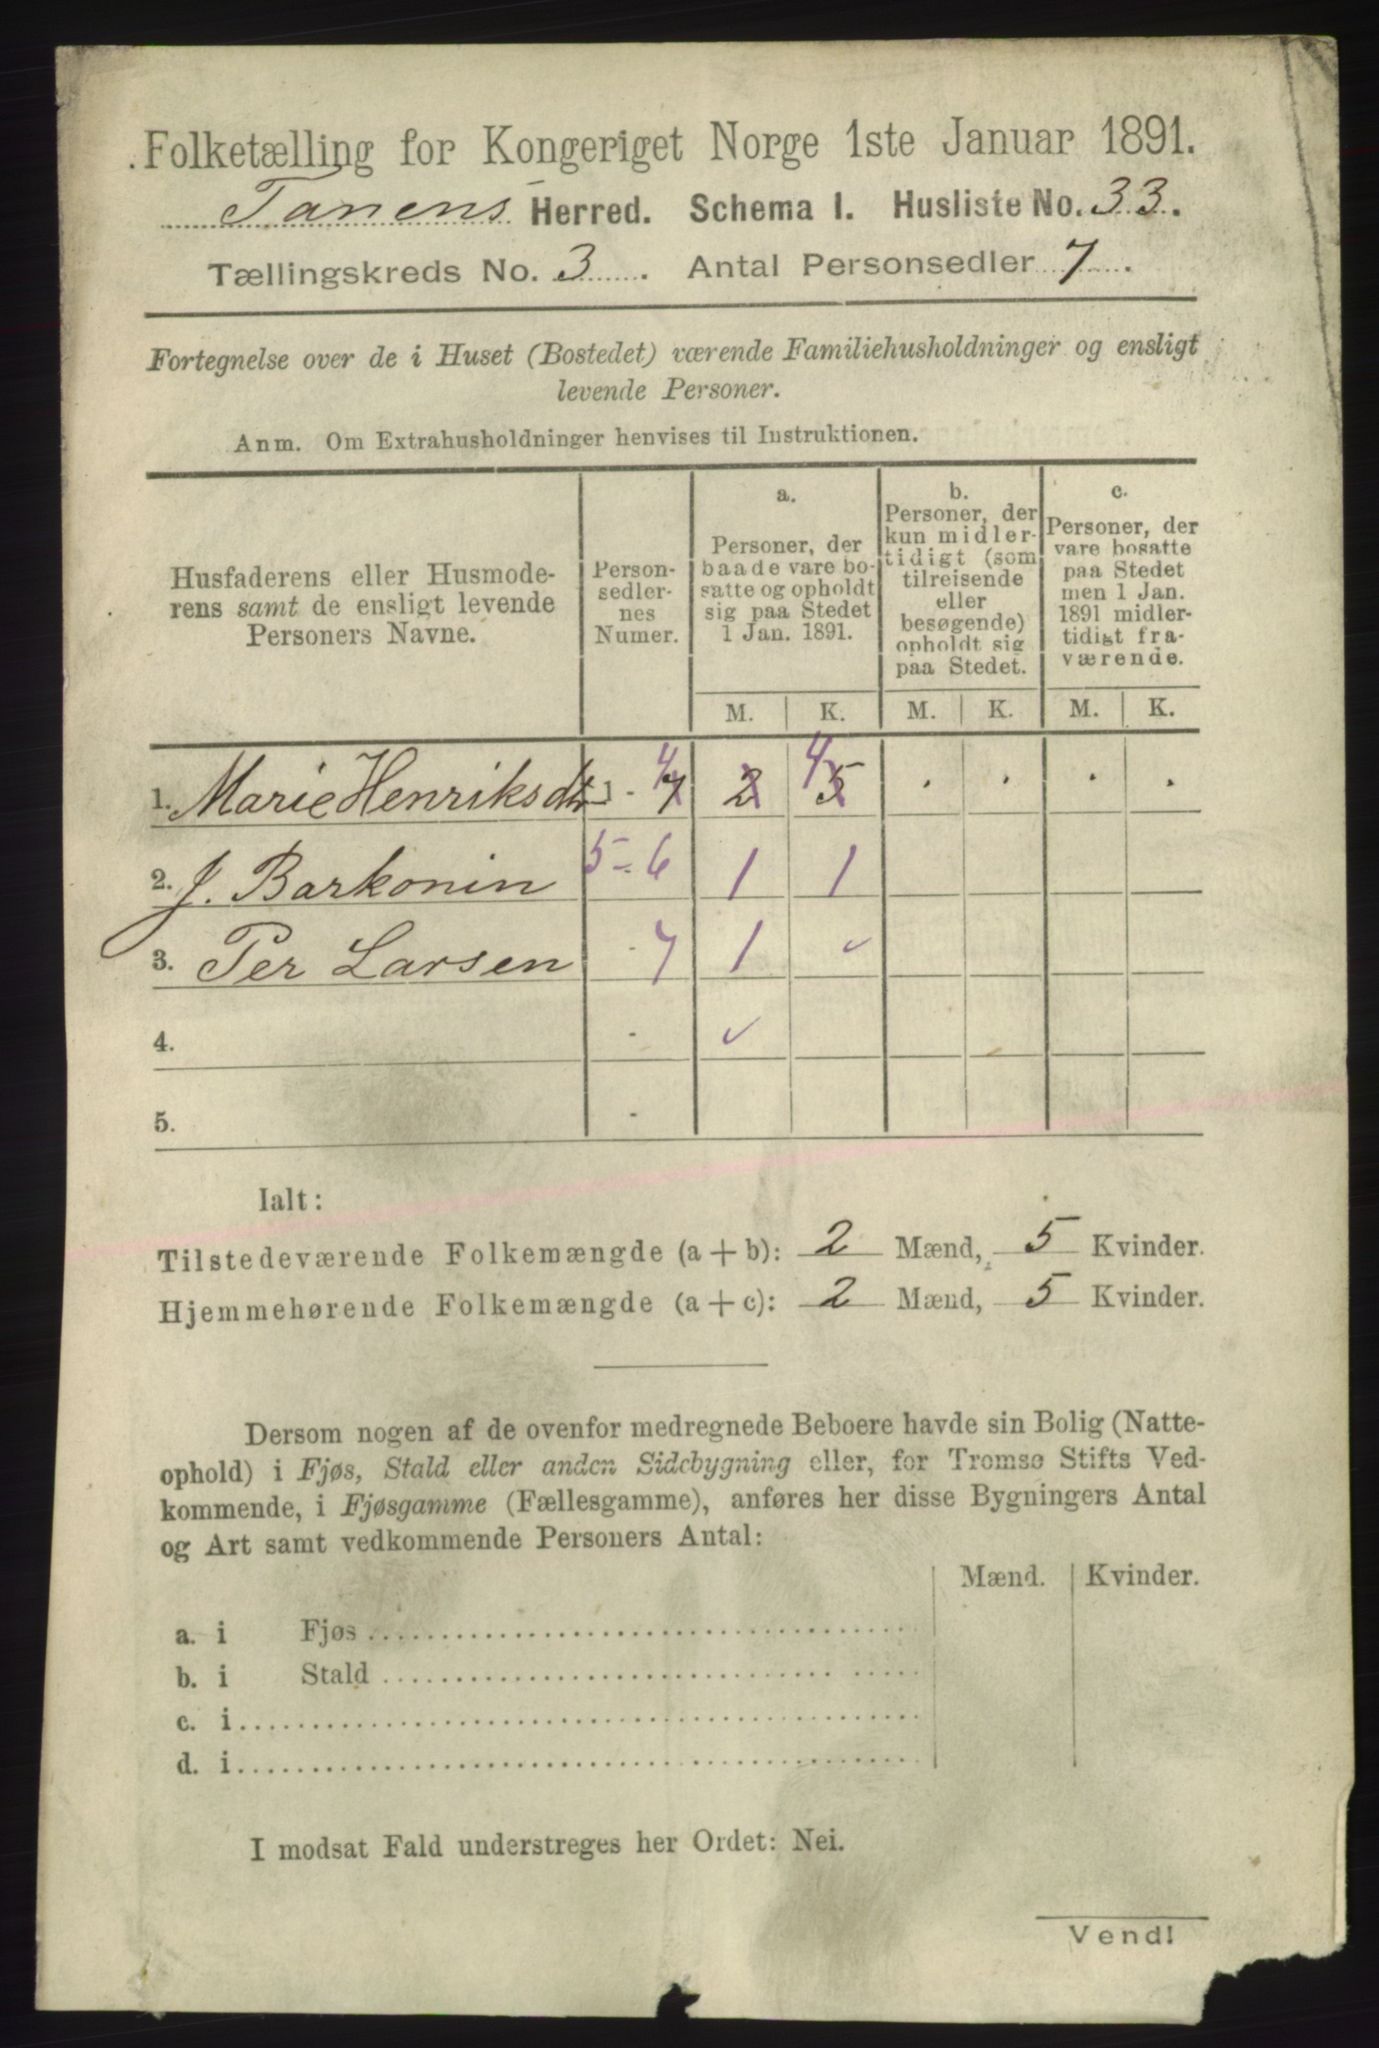 Folketælling for Kongeriget Norge 1ste Januar 1891.
Tanens Herred. Schema I. Husliste No. 33.
Tællingskreds No. 3. Antal Personsedler 7.
Fortegnelse over de i Huset (Bostedet) værende Familiehusholdninger og ensligt
levende Personer.
Anm. Om Extrahusholdninger henvises til Instruktionen.
Husfaderens eller Husmode-
rens samt de ensligt levende
Personers Navne.
Person-
sedler-
nes
Numer.
a.
Personer, der
baade vare bo-
satte og opholdt
sig paa Stedet
1 Jan. 1891.
b.
Personer, der
kun midler-
tidigt (som
tilreisende
eller
besøgende)
opholdt sig
paa Stedet.
c.
Personer, der
vare bosatte
paa Stedet
men 1 Jan.
1891 midler-
tidigt fra-
værende.
M. K. M. K. M. K.
1. Marie Henriksdtr 1 - 7 4 2 5 4 . . . .
2. J. Barkonin 5 - 6 1 1
3. Per Larsen - 7 1 ✓
4. - ✓
5. -
Ialt:
Tilstedeværende Folkemængde (a + b): 2 Mænd, 5 Kvinder.
Hjemmehørende Folkemængde (a + c): 2 Mænd, 5 Kvinder.
Dersom nogen af de ovenfor medregnede Beboere havde sin Bolig (Natte-
ophold) i Fjøs, Stald eller anden Sidebygning eller, for Tromsø Stifts Ved-
kommende, i Fjøsgamme (Fællesgamme), anføres her disse Bygningers Antal
og Art samt vedkommende Personers Antal:
Mænd. Kvinder.
a. i Fjøs
b. i Stald
c. i
d. i
I modsat Fald understreges her Ordet: Nei.
Vend!